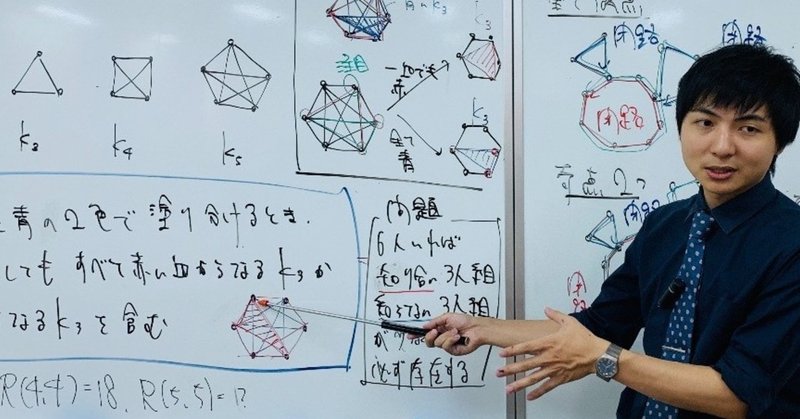 K₃ K₄ K₅
と青の2色で塗り分けるとき、
しても すべて赤い辺からなるK₃か
なるK₃を含む
R(4,4)=18、R(5,5)=?
青のK₃
K₃
一辺でも
赤
全て
青
K₃
問題
6人いれば
知り合い3人組
知らない3人組
が
必ず存在する
全て偶点
閉路
閉路
閉路
奇点2つ
閉路
閉路